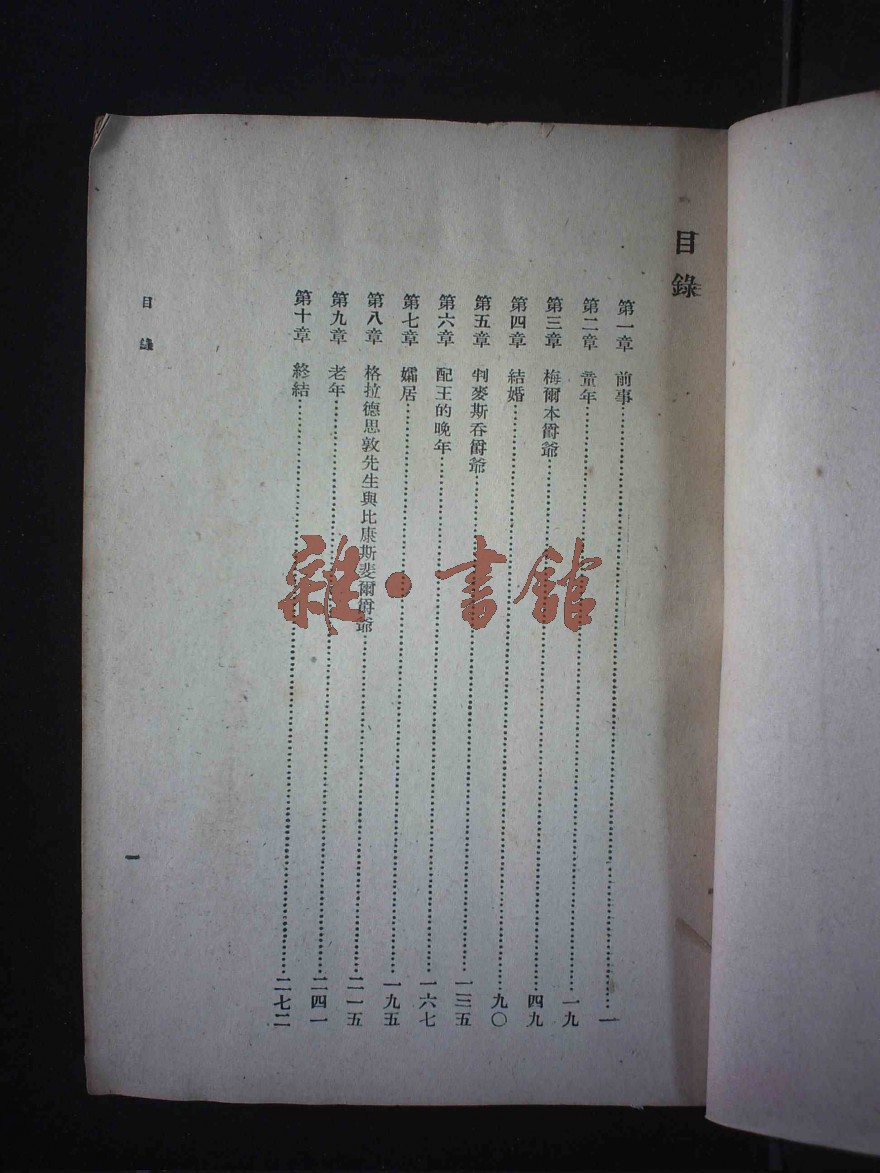 目錄
第一章 前事…………一
第二章 童年…………一九
第三章 梅爾本爵爺…………四九
第四章 結婚…………九〇
第五章 判麥斯吞爵爺…………一三五
第六章 配王的晚年…………一六七
第七章 孀居…………一九五
第八章 格拉德思敦先生與比康斯斐爾爵爺…………二一五
第九章 老年…………二四一
第十章 終結…………二七二
目錄
一
雜·書館